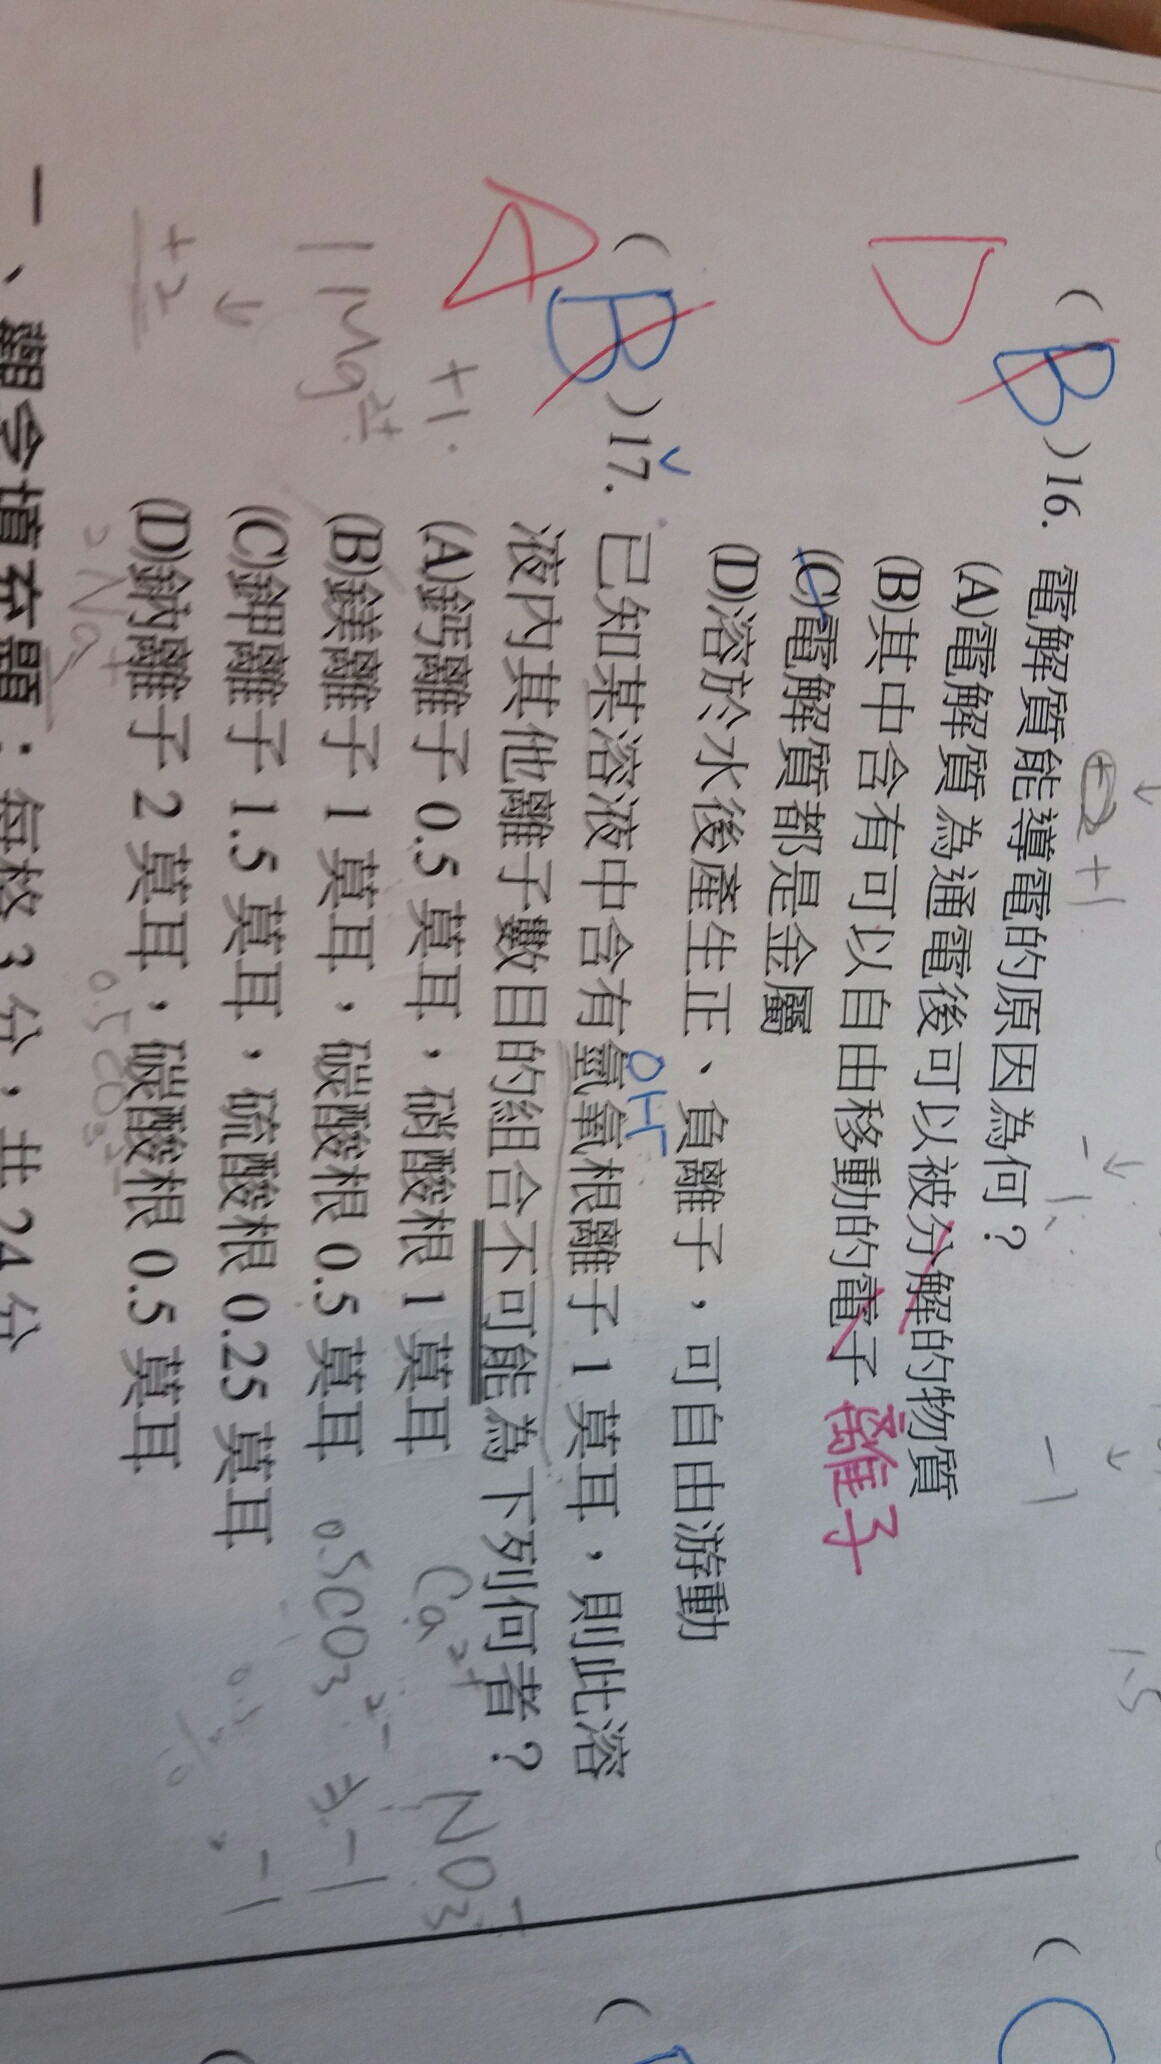 (B)16. 電解質能導電的原因為何？
D
(A)電解質為通電後可以被分解的物質
(B)其中含有可以自由移動的電子 離子
(C)電解質都是金屬
(D)溶於水後產生正、負離子，可自由游動
(B)17. 已知某溶液中含有氫氧根離子 1 莫耳，則此溶
OH⁻
A
液內其他離子數目的組合不可能為下列何者？
(A)鈣離子 0.5 莫耳，硝酸根 1 莫耳 Ca²⁺ NO₃⁻
+1
(B)鎂離子 1 莫耳，碳酸根 0.5 莫耳 0.5CO₃²⁻ -1
1Mg²⁺
(C)鉀離子 1.5 莫耳，硫酸根 0.25 莫耳
(D)鈉離子 2 莫耳，碳酸根 0.5 莫耳
+2
2Na⁺ 0.5CO₃²⁻
一、觀念填充題：每格 3 分，共 24 分